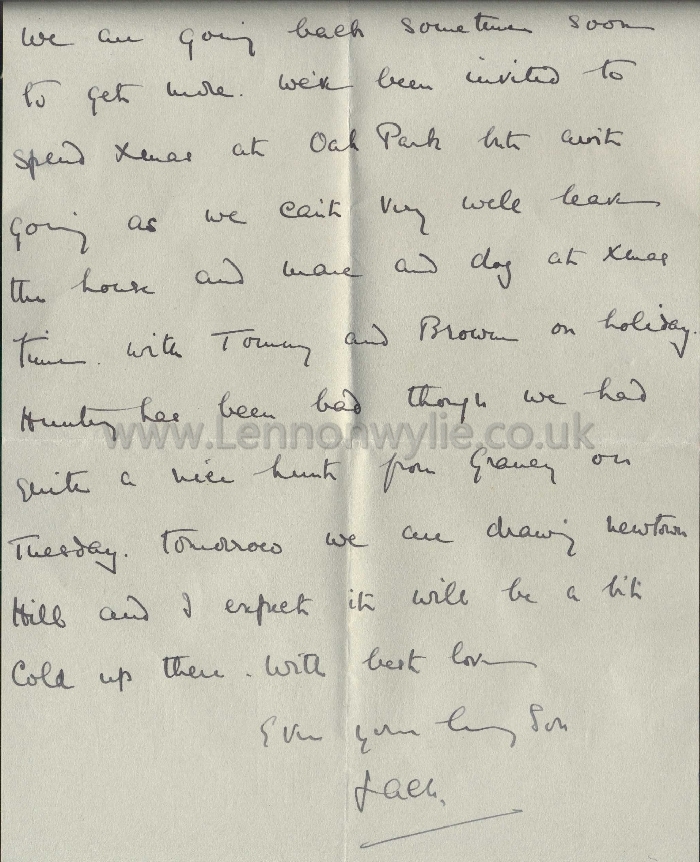 we are going back sometime soon
to get more. We've been invited to
spend Xmas at Oak Park but arent
going as we can't very well leave
the house and mare and dog at Xmas
time. with Tommy and Brown on holiday.
Hunting has been bad though we had
www.Lennonwylie.co.uk
quite a nice hunt from Graney on
Tuesday. tomorrow we are drawing newtown
Hill and I expect it will be a bit
Cold up there. With best love
Ever your loving Son
Jack.